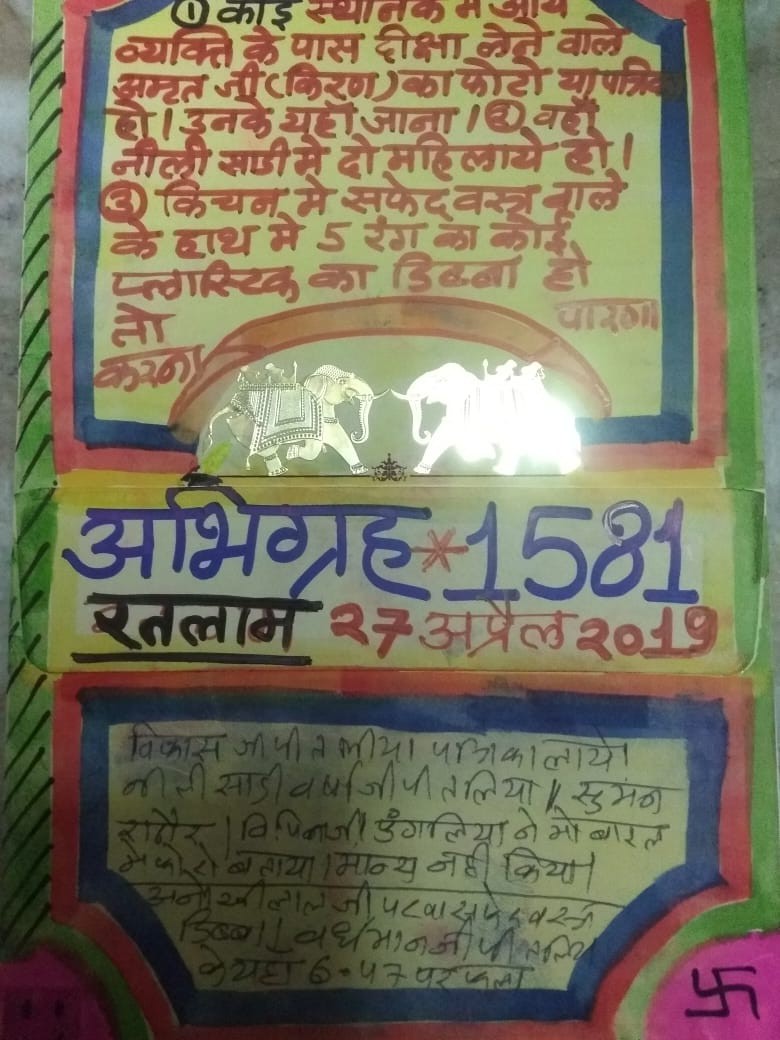 ① कोई स्थानक में आये
व्यक्ति के पास दीक्षा लेने वाले
अमृत जी (किरण) का फोटो या पत्रिका
हो। उनके यहाँ जाना। ② वहाँ
नीली साडी मे दो महिलाये हो।
③ किचन मे सफेद वस्त्र वाले
के हाथ मे 5 रंग का कोई
प्लास्टिक का डिब्बा हो
तो पारणा
करना
अभिग्रह * 1581
रतलाम 27 अप्रैल 2019
विकास जी पीतलीया पत्रिका लाये।
नीली साडी वर्षा जी पीतलिया ॥ सुमन
राठौर। विपिनजी डुंगालिया ने मोबाईल
मे फोटो बताया। मान्य नही किया।
अनोखीलाल जी पटवा सफेद वस्त्र
डिब्बा। वर्धमानजी पीतलिया
के यहाँ 6-47 पर फला